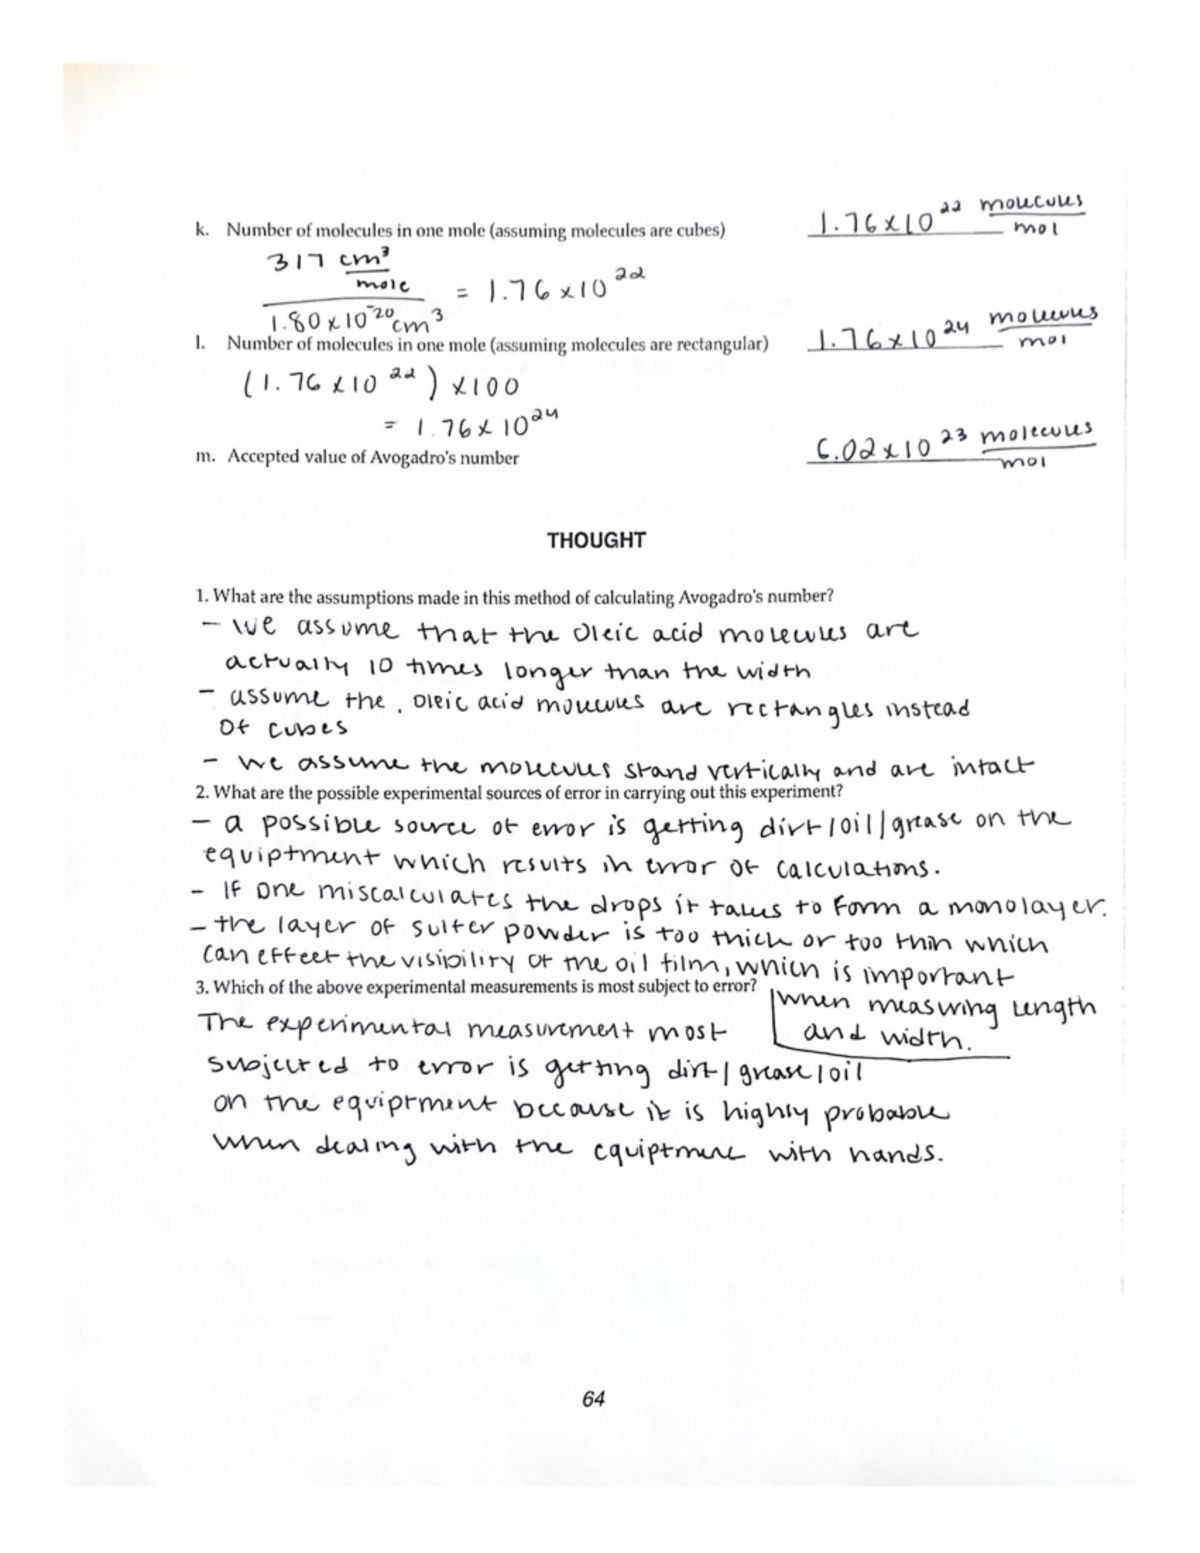 k. Number of molecules in one mole (assuming molecules are cubes) 1.76x10^22 molecules/mol
317 cm³/mole
/ 1.80x10^-20 cm³ = 1.76x10^22
l. Number of molecules in one mole (assuming molecules are rectangular) 1.76x10^24 molecules/mol
(1.76x10^22) x100
= 1.76x10^24
m. Accepted value of Avogadro's number 6.02x10^23 molecules/mol
THOUGHT
1. What are the assumptions made in this method of calculating Avogadro's number?
- we assume that the oleic acid molecules are
actually 10 times longer than the width
- assume the oleic acid molecules are rectangles instead
of cubes
- we assume the molecules stand vertically and are intact
2. What are the possible experimental sources of error in carrying out this experiment?
- a possible source of error is getting dirt/oil/grease on the
equiptment which results in error of calculations.
- If one miscalculates the drops it takes to form a monolayer.
- the layer of sulfer powder is too thick or too thin which
can effect the visibility of the oil film, which is important
3. Which of the above experimental measurements is most subject to error?
when measuring length
and width.
The experimental measurement most
subjected to error is getting dirt/grease/oil
on the equiptment because it is highly probable
when dealing with the equiptment with hands.
64